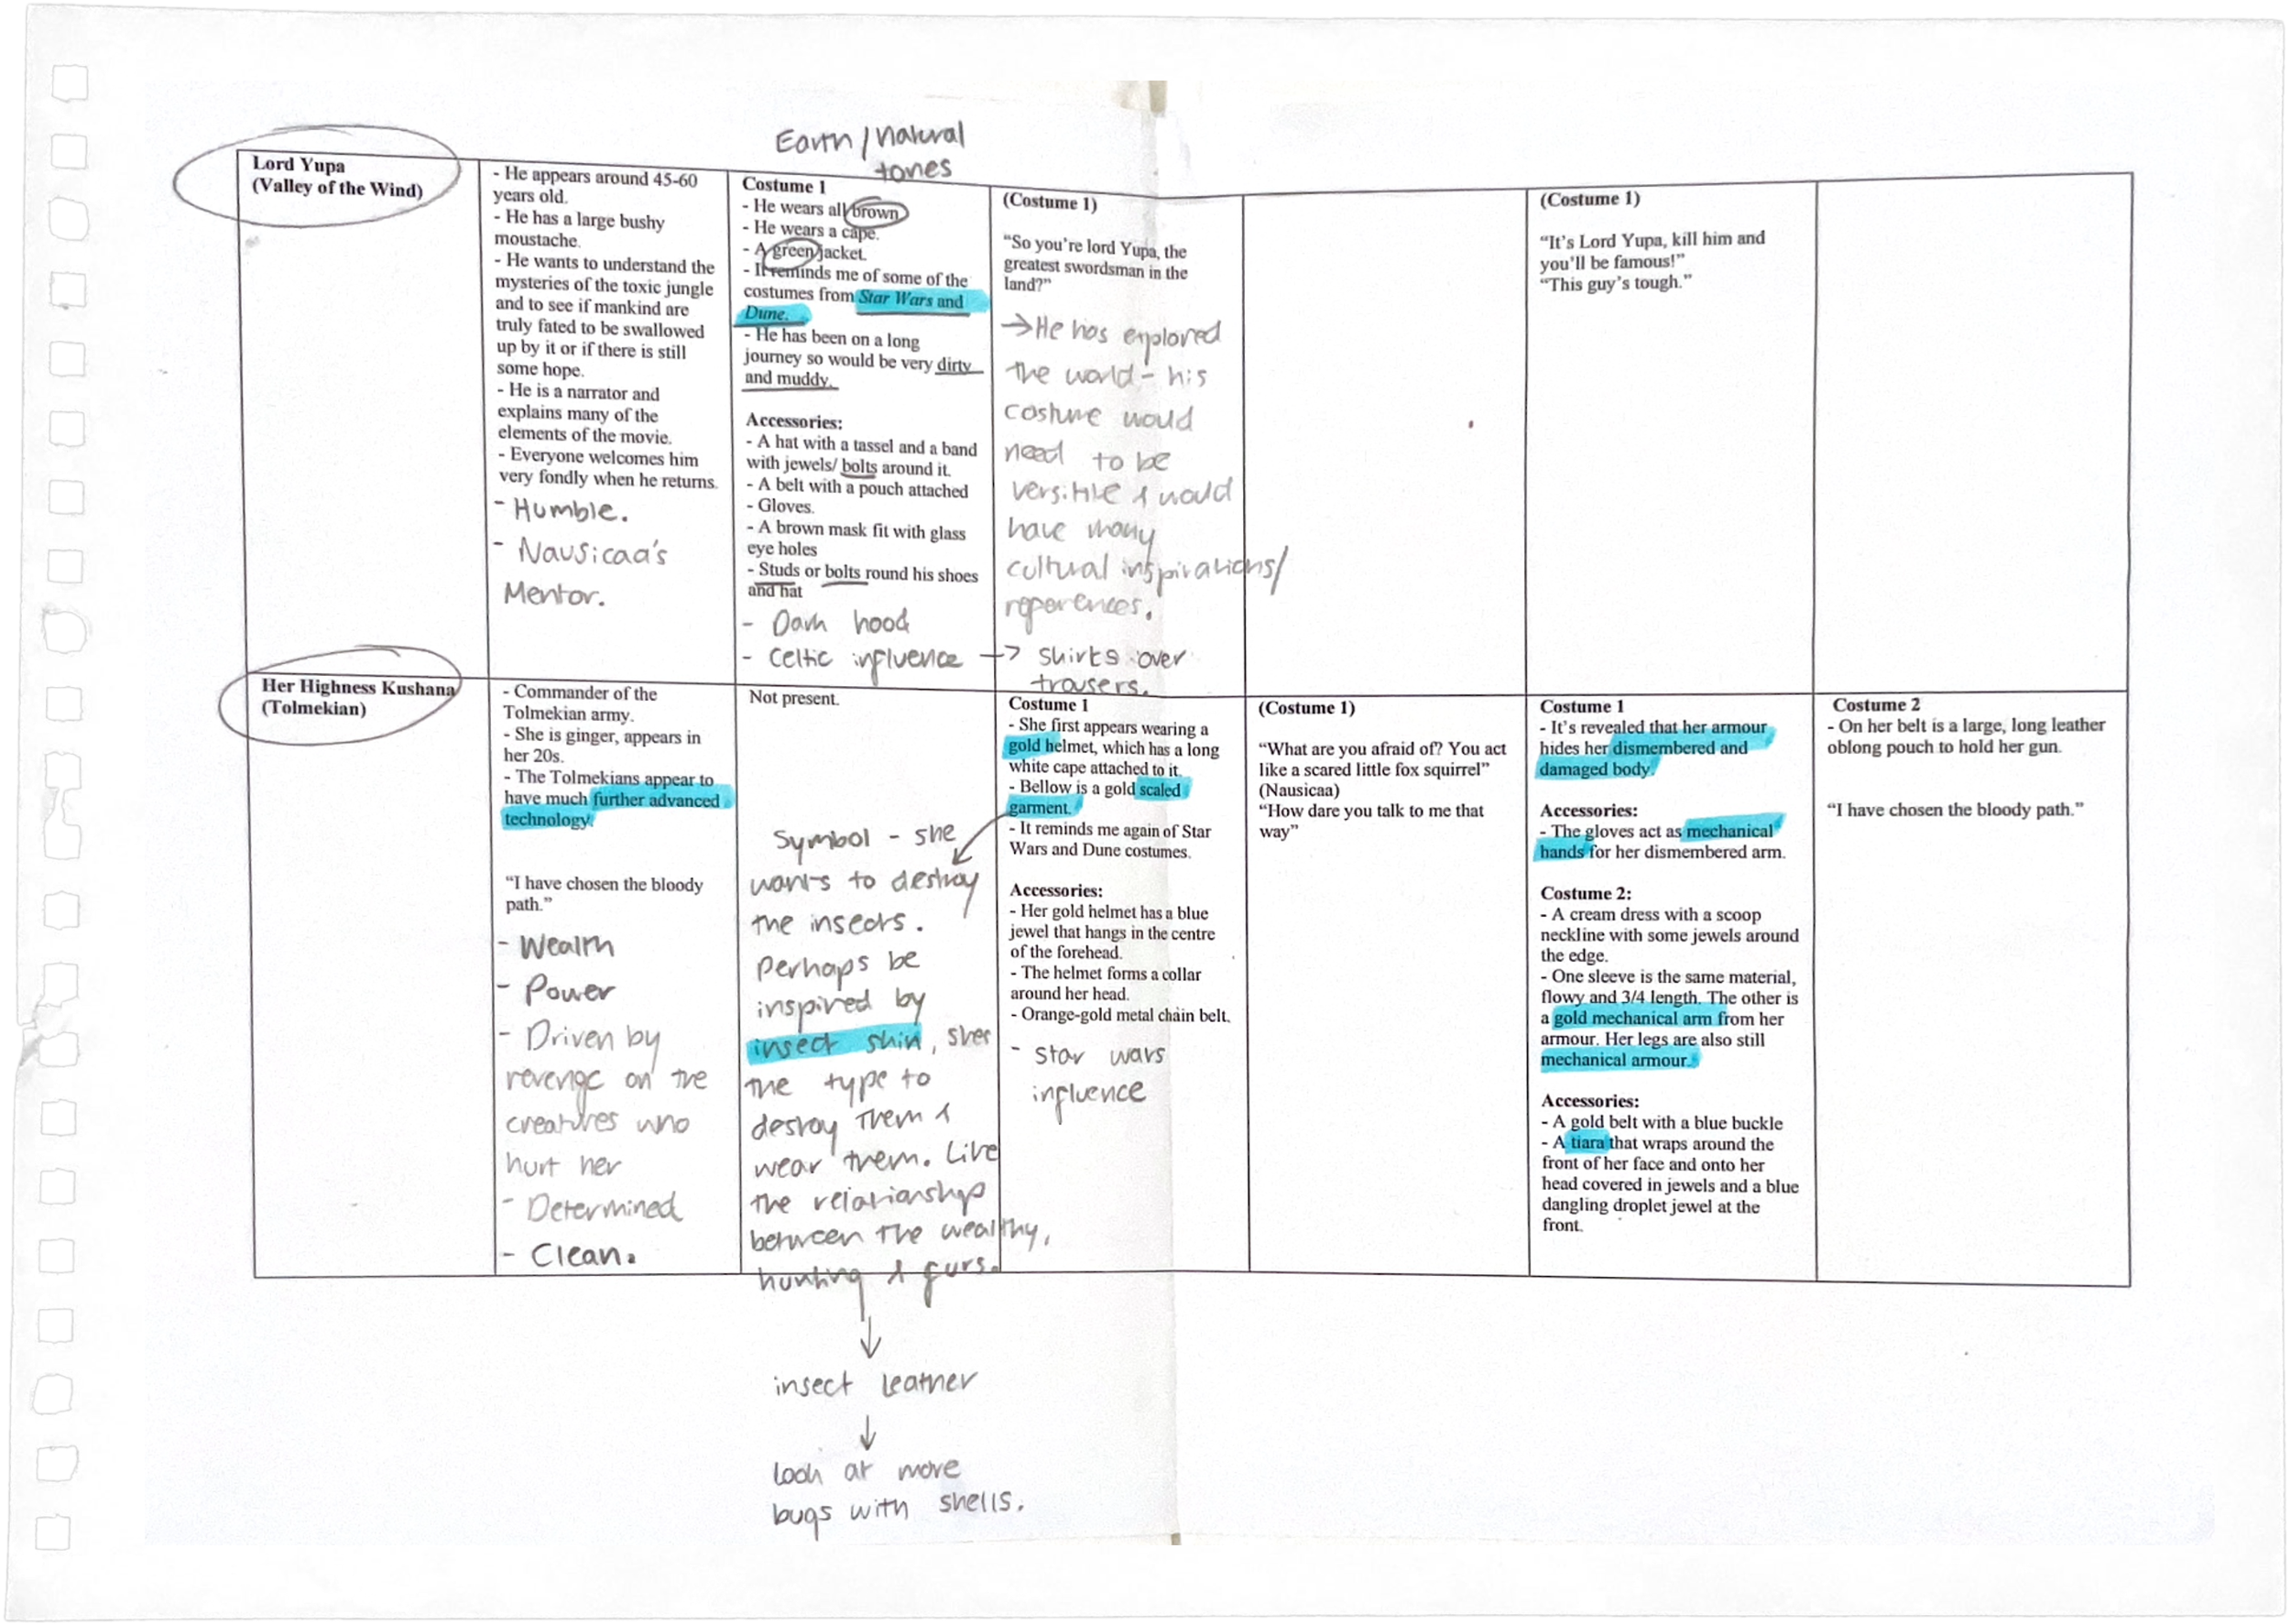 Earth/natural
tones
Lord Yupa
(Valley of the Wind)
- He appears around 45-60
years old.
- He has a large bushy
moustache.
- He wants to understand the
mysteries of the toxic jungle
and to see if mankind are
truly fated to be swallowed
up by it or if there is still
some hope.
- He is a narrator and
explains many of the
elements of the movie.
- Everyone welcomes him
very fondly when he returns.
- Humble.
- Nausicaa's
Mentor.
Costume 1
- He wears all brown
- He wears a cape.
- A green jacket.
- It reminds me of some of the
costumes from Star Wars and
Dune.
- He has been on a long
journey so would be very dirty
and muddy.
Accessories:
- A hat with a tassel and a band
with jewels/ bolts around it.
- A belt with a pouch attached
- Gloves.
- A brown mask fit with glass
eye holes
- Studs or bolts round his shoes
and hat
- Dark hood
- Celtic influence → shirts over
trousers.
(Costume 1)
“So you’re lord Yupa, the
greatest swordsman in the
land?”
→ He has explored
the world - his
costume would
need to be
versitile & would
have many
cultural inspirations/
reperences.
(Costume 1)
“It’s Lord Yupa, kill him and
you’ll be famous!”
“This guy’s tough.”
Her Highness Kushana
(Tolmekian)
- Commander of the
Tolmekian army.
- She is ginger, appears in
her 20s.
- The Tolmekians appear to
have much further advanced
technology.
“I have chosen the bloody
path.”
- Wealth
- Power
- Driven by
revenge on the
creatures who
hurt her
- Determined
- Clean.
Not present.
Symbol - she
wants to destroy
the insects.
Perhaps be
inspired by
insect skin, shes
the type to
destroy them &
wear them. Like
the relationship
between the wealthy,
hunting & furs.
↓
insect leather
↓
look at more
bugs with shells.
Costume 1
- She first appears wearing a
gold helmet, which has a long
white cape attached to it.
- Bellow is a gold scaled
garment.
- It reminds me again of Star
Wars and Dune costumes.
Accessories:
- Her gold helmet has a blue
jewel that hangs in the centre
of the forehead.
- The helmet forms a collar
around her head.
- Orange-gold metal chain belt.
- Star wars
influence
(Costume 1)
“What are you afraid of? You act
like a scared little fox squirrel”
(Nausicaa)
“How dare you talk to me that
way”
Costume 1
- It’s revealed that her armour
hides her dismembered and
damaged body.
Accessories:
- The gloves act as mechanical
hands for her dismembered arm.
Costume 2:
- A cream dress with a scoop
neckline with some jewels around
the edge.
- One sleeve is the same material,
flowy and 3/4 length. The other is
a gold mechanical arm from her
armour. Her legs are also still
mechanical armour.
Accessories:
- A gold belt with a blue buckle
- A tiara that wraps around the
front of her face and onto her
head covered in jewels and a blue
dangling droplet jewel at the
front.
Costume 2
- On her belt is a large, long leather
oblong pouch to hold her gun.
“I have chosen the bloody path.”